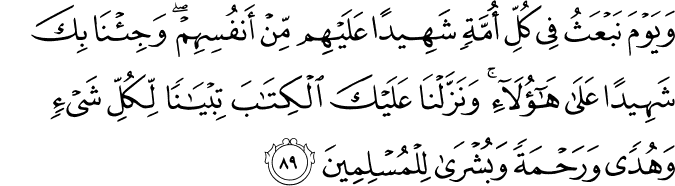 وَيَوْمَ نَبْعَثُ فِى كُلِّ أُمَّةٍ شَهِيدًا عَلَيْهِم مِّنْ أَنفُسِهِمْ ۖ وَجِئْنَا بِكَ
شَهِيدًا عَلَىٰ هَـٰٓؤُلَآءِ ۚ وَنَزَّلْنَا عَلَيْكَ ٱلْكِتَـٰبَ تِبْيَـٰنًا لِّكُلِّ شَىْءٍ
وَهُدًى وَرَحْمَةً وَبُشْرَىٰ لِلْمُسْلِمِينَ ﴿٨٩﴾